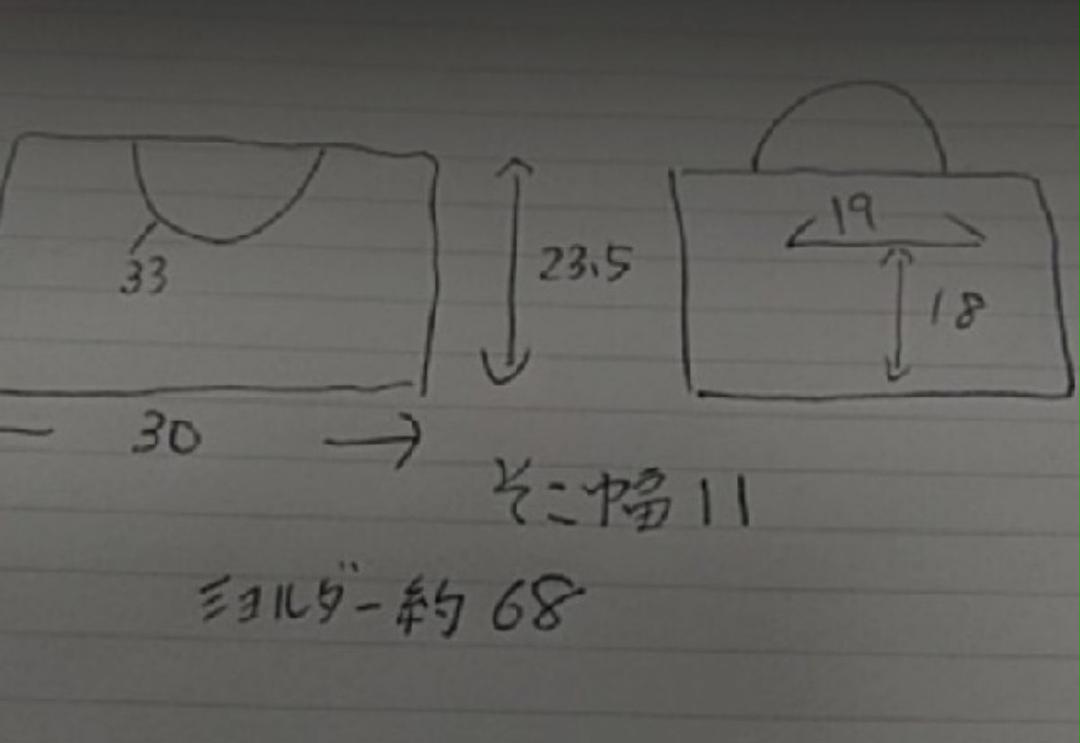 19
33
23.5
18
30
そこ幅 11
ショルダー約 68